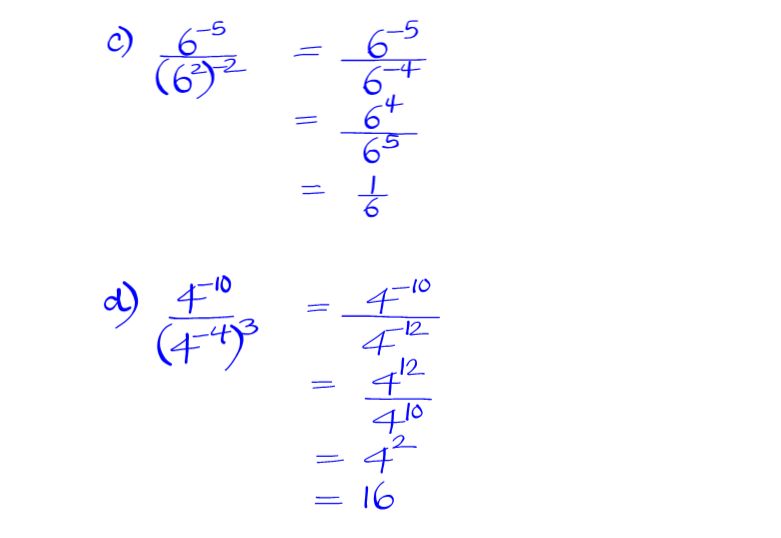 c) 6⁻⁵/(6²)⁻² = 6⁻⁵/6⁻⁴
= 6⁴/6⁵
= 1/6
d) 4⁻¹⁰/(4⁻⁴)³ = 4⁻¹⁰/4⁻¹²
= 4¹²/4¹⁰
= 4²
= 16